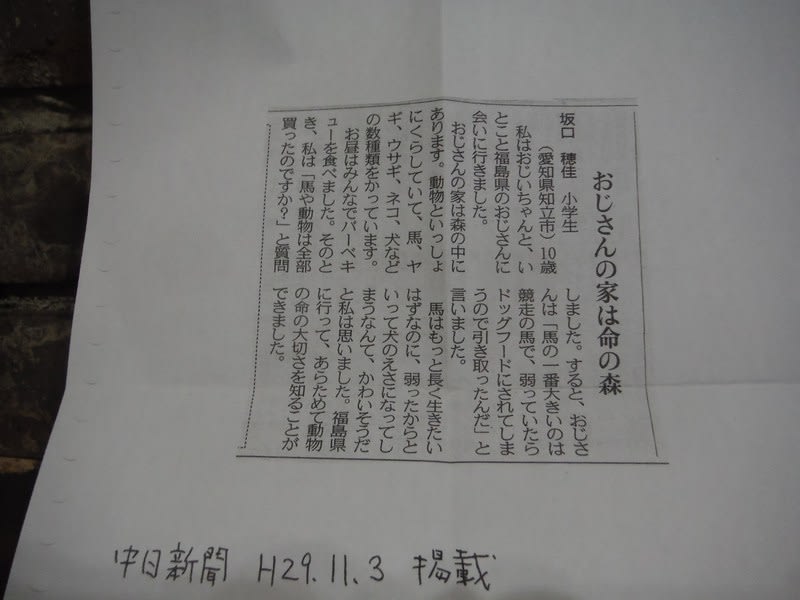 おじさんの家は命の森
坂口 穂佳 小学生
(愛知県知立市) 10歳
私はおじいちゃんと、い
とこと福島県のおじさんに
会いに行きました。
おじさんの家は森の中に
あります。動物といっしょ
にくらしていて、馬、ヤ
ギ、ウサギ、ネコ、犬など
の数種類をかっています。
お昼はみんなでバーベキ
ューを食べました。そのと
き、私は「馬や動物は全部
買ったのですか?」と質問
しました。すると、おじさ
んは「馬の一番大きいのは
競走の馬で、弱っていたら
ドッグフードにされてしま
うので引き取ったんだ」と
言いました。
馬はもっと長く生きたい
はずなのに、弱ったからと
いって犬のえさになってし
まうなんて、かわいそうだ
と私は思いました。福島県
に行って、あらためて動物
の命の大切さを知ることが
できました。
中日新聞 H29.11.3 掲載